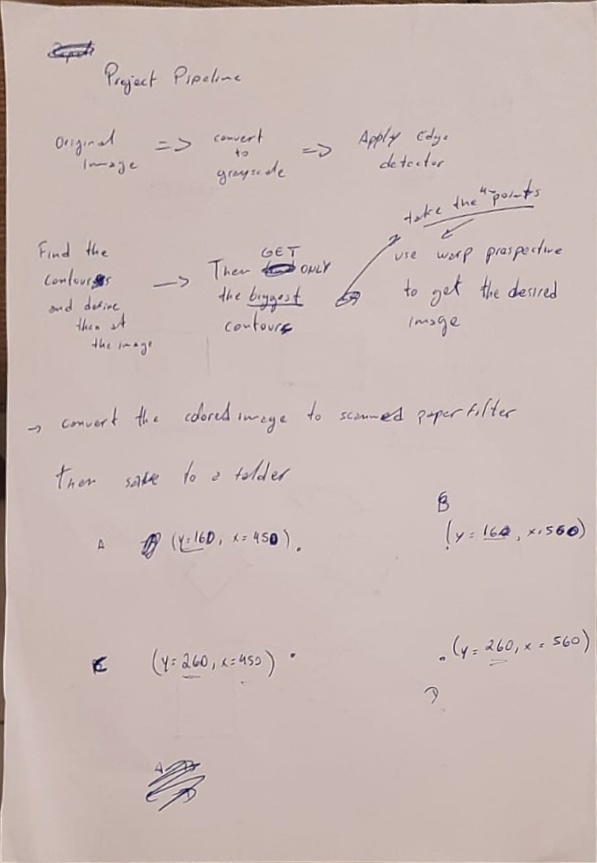 Project Pipeline
Original image => convert to grayscale => Apply Edge detector
take the 4 points
Find the contours and define them at the image -> Then GET ONLY the biggest contours
use warp prespective to get the desired image
-> convert the colored image to scanned paper filter
Then save to a folder
A (y=160, x=450).
B
(y=160, x=560)
C (y=260, x=450) .
. (y=260, x=560)